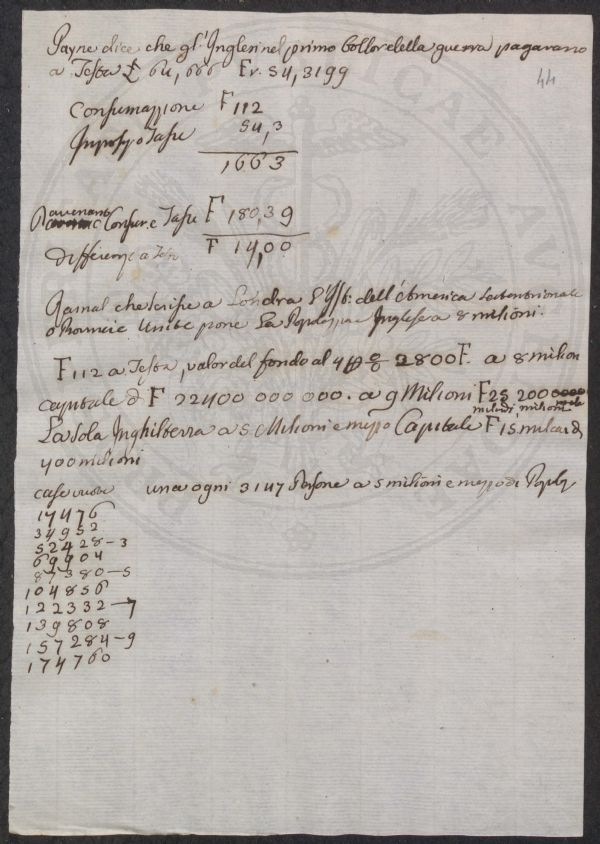 Payne dice che gl'Inglesi nel primo bollor della guerra pagavano
a Testa £ 64,666 Fr. 54,3199
44
Consumazzione F 112
54,3
1663
avenant Consum e Tasse F 180,39
differenza a Testa F 14,00
che scrisse a Londra dell'America Settentrionale
o Provincie Unite pone La Popolazione Inglese a 8 milioni.
F 112 a Testa, valor del fondo al 4 2800 F. a 8 milion
capitale d F 22400 000 000. a 9 Milioni F 25 200
miliardi milioni
La sola Inghilterra a 5 Milioni e mezzo Capitale F 15 miliardi
400 milioni
case vuote una ogni 3147 Persone a 5 milioni e mezzo di
17476
34952
52428-3
69904
87380-5
104856
122332-7
139808
157284-9
174760